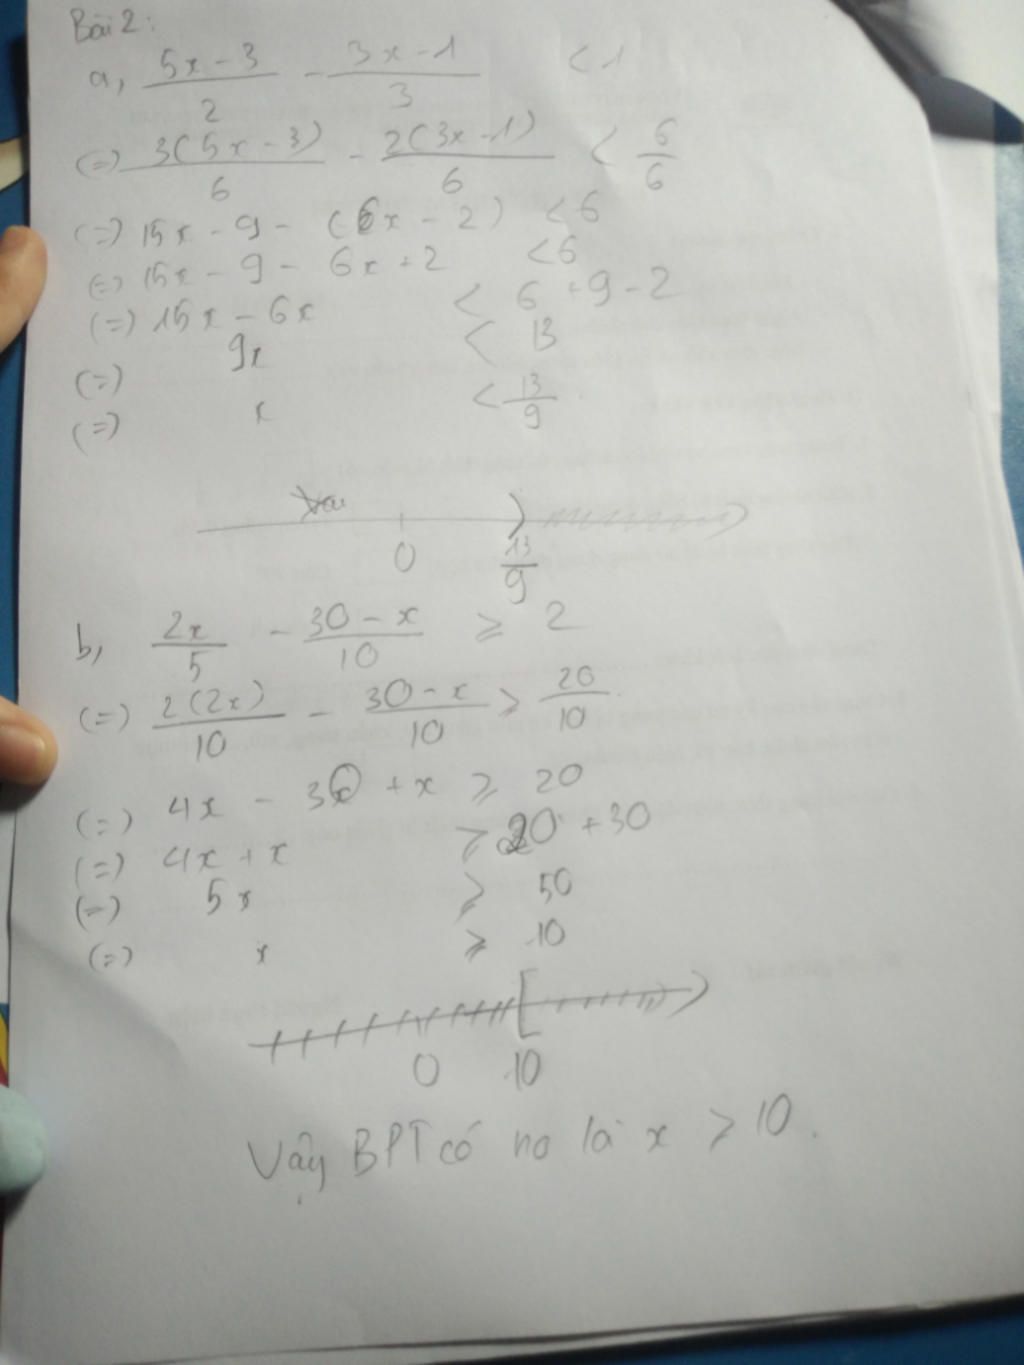 Bài 2:
a, (5x - 3)/2 - (3x - 1)/3 < 1
(=) 3(5x - 3)/6 - 2(3x - 1)/6 < 6/6
(=) 15x - 9 - (6x - 2) < 6
(=) 15x - 9 - 6x + 2 < 6
(=) 15x - 6x < 6 + 9 - 2
(=) 9x < 13
(=) x < 13/9
0 13/9
b, 2x/5 - (30 - x)/10 ⩾ 2
(=) 2(2x)/10 - (30 - x)/10 ⩾ 20/10
(=) 4x - 30 + x ⩾ 20
(=) 4x + x ⩾ 20 + 30
(=) 5x ⩾ 50
(=) x ⩾ 10
0 10
Vậy BPT có no là x ⩾ 10.